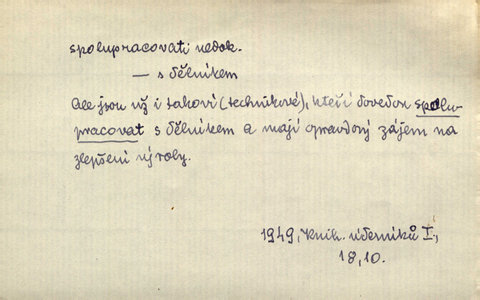 spolupracovati nedok.
— s dělníkem
Ale jsou už i takoví (technikové), kteří dovedou spolu-
pracovat s dělníkem a mají opravdový zájem na
zlepšení výroby.
1949, Knih. úderníků I,
18, 10.